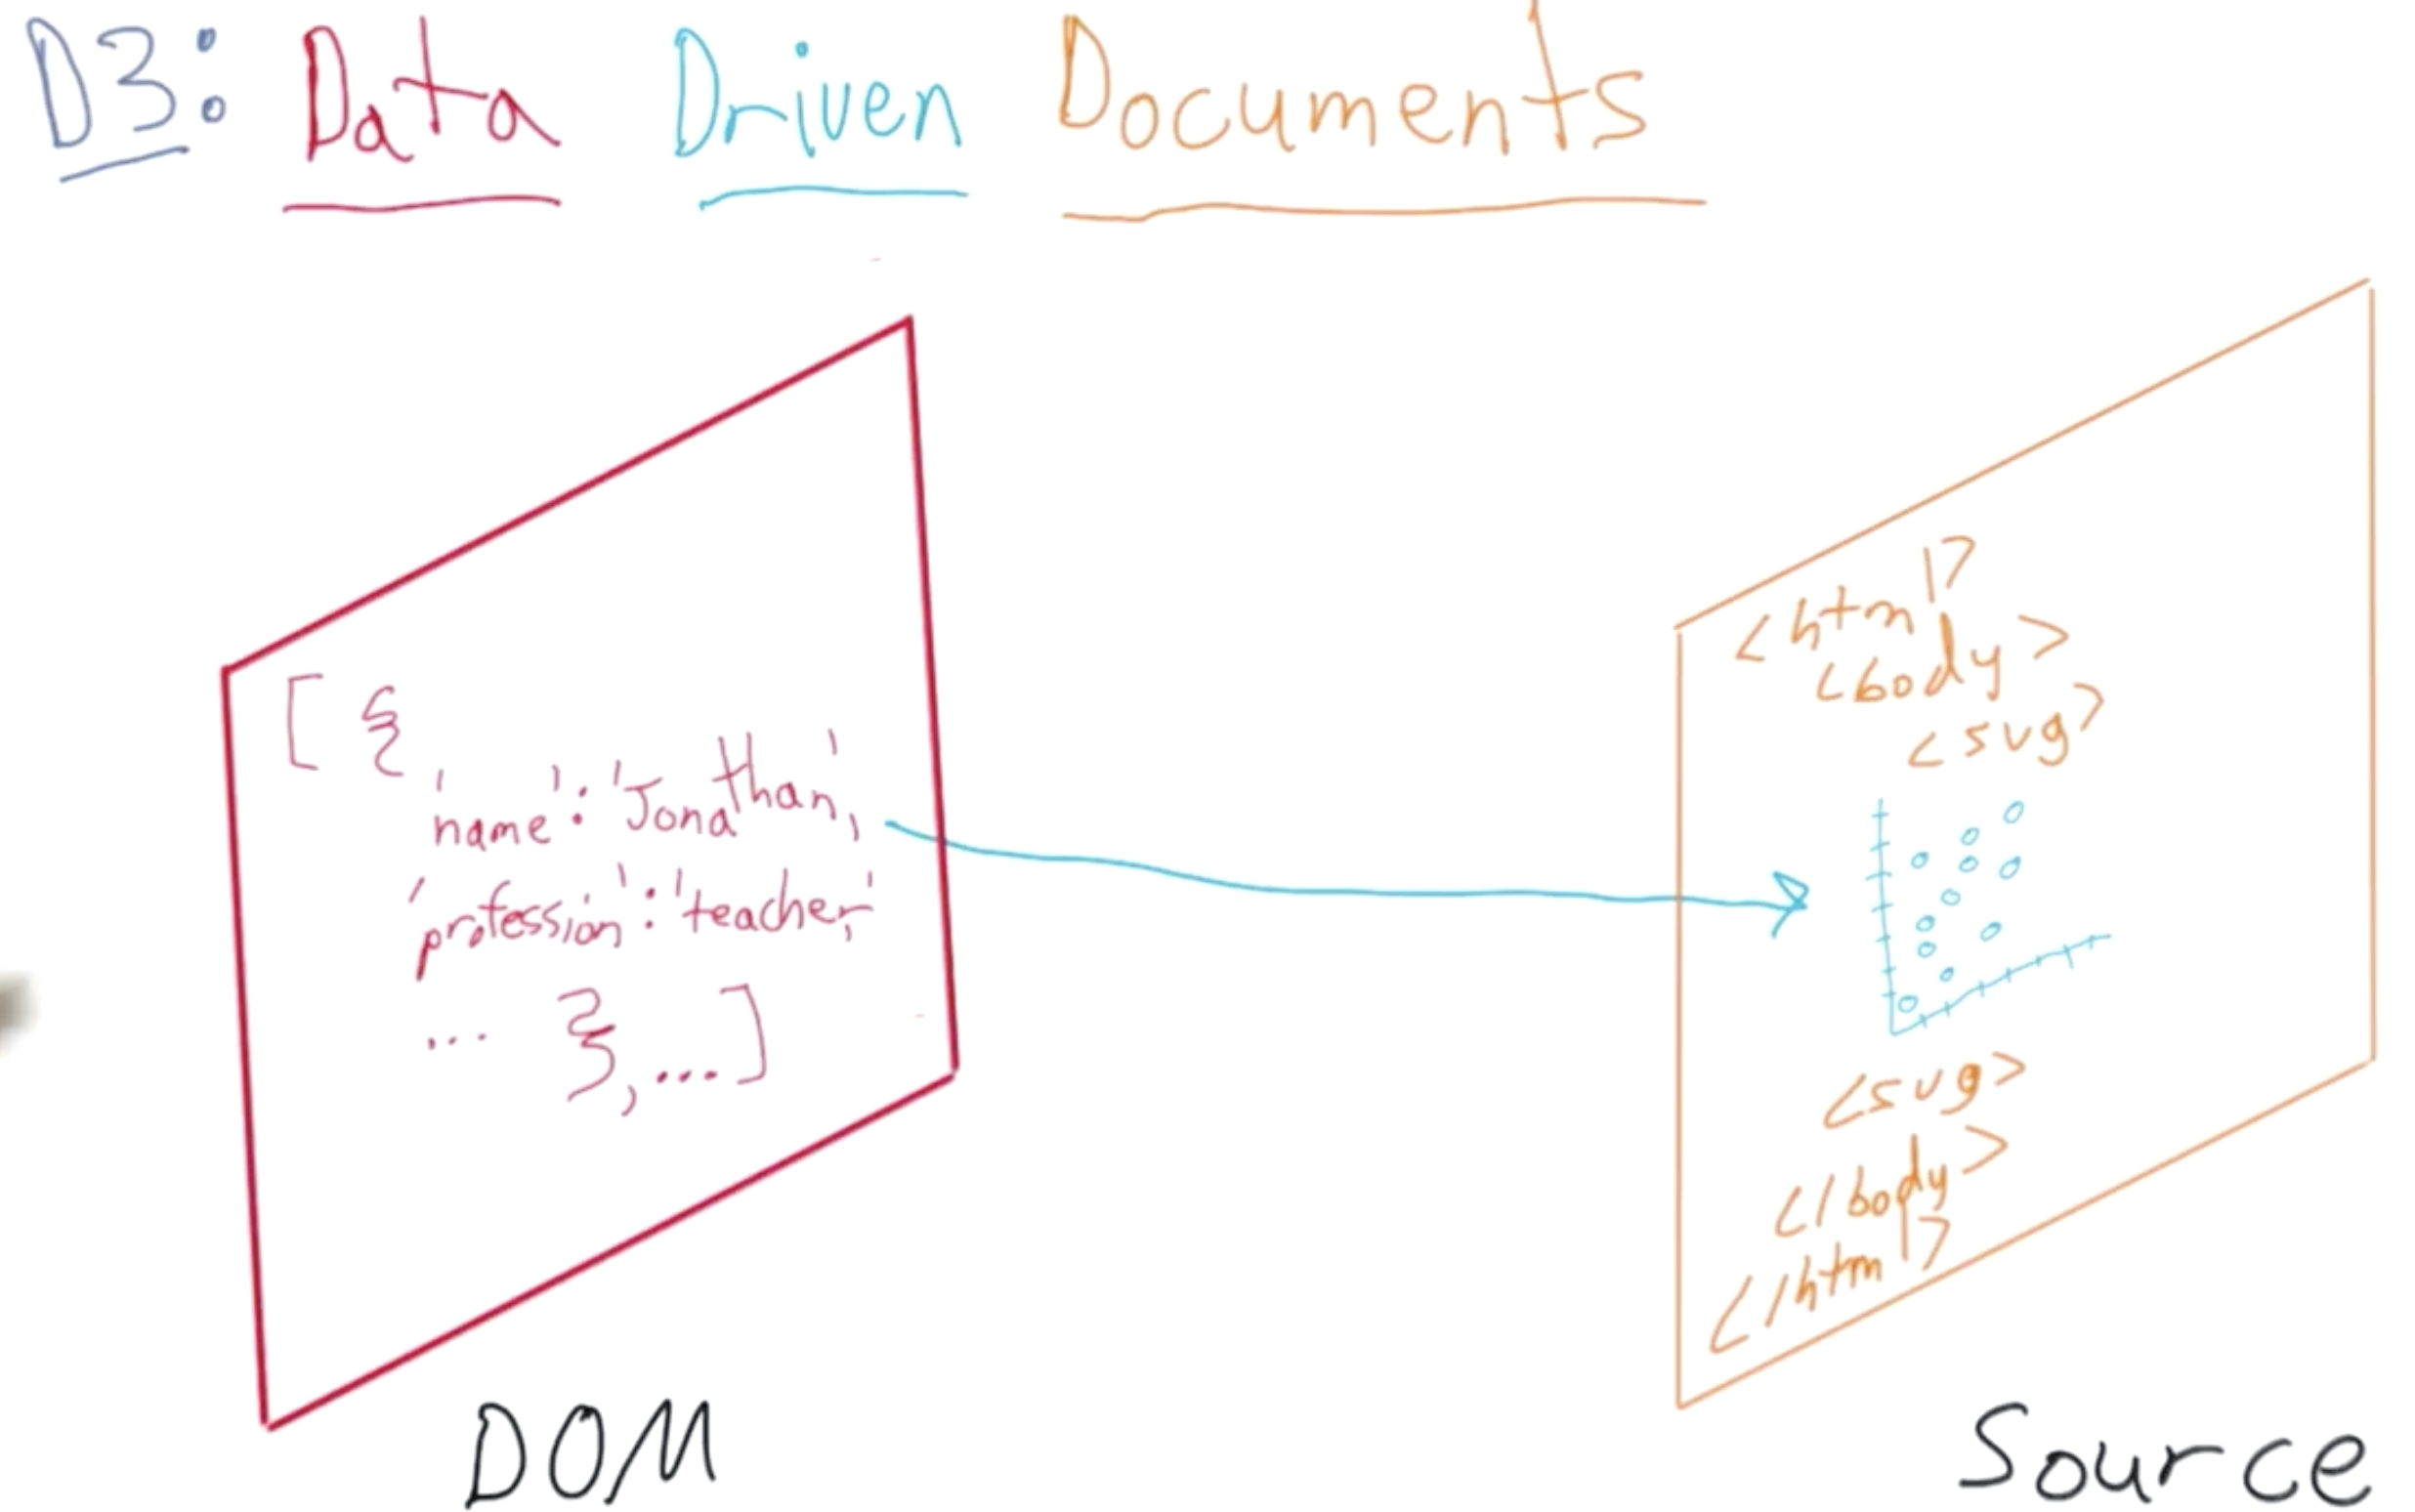 D3: Data Driven Documents
[ {
'name': 'Jonathan',
'profession': 'teacher',
... }, ... ]
DOM
<html>
<body>
<svg>
<svg>
</body>
</html>
Source